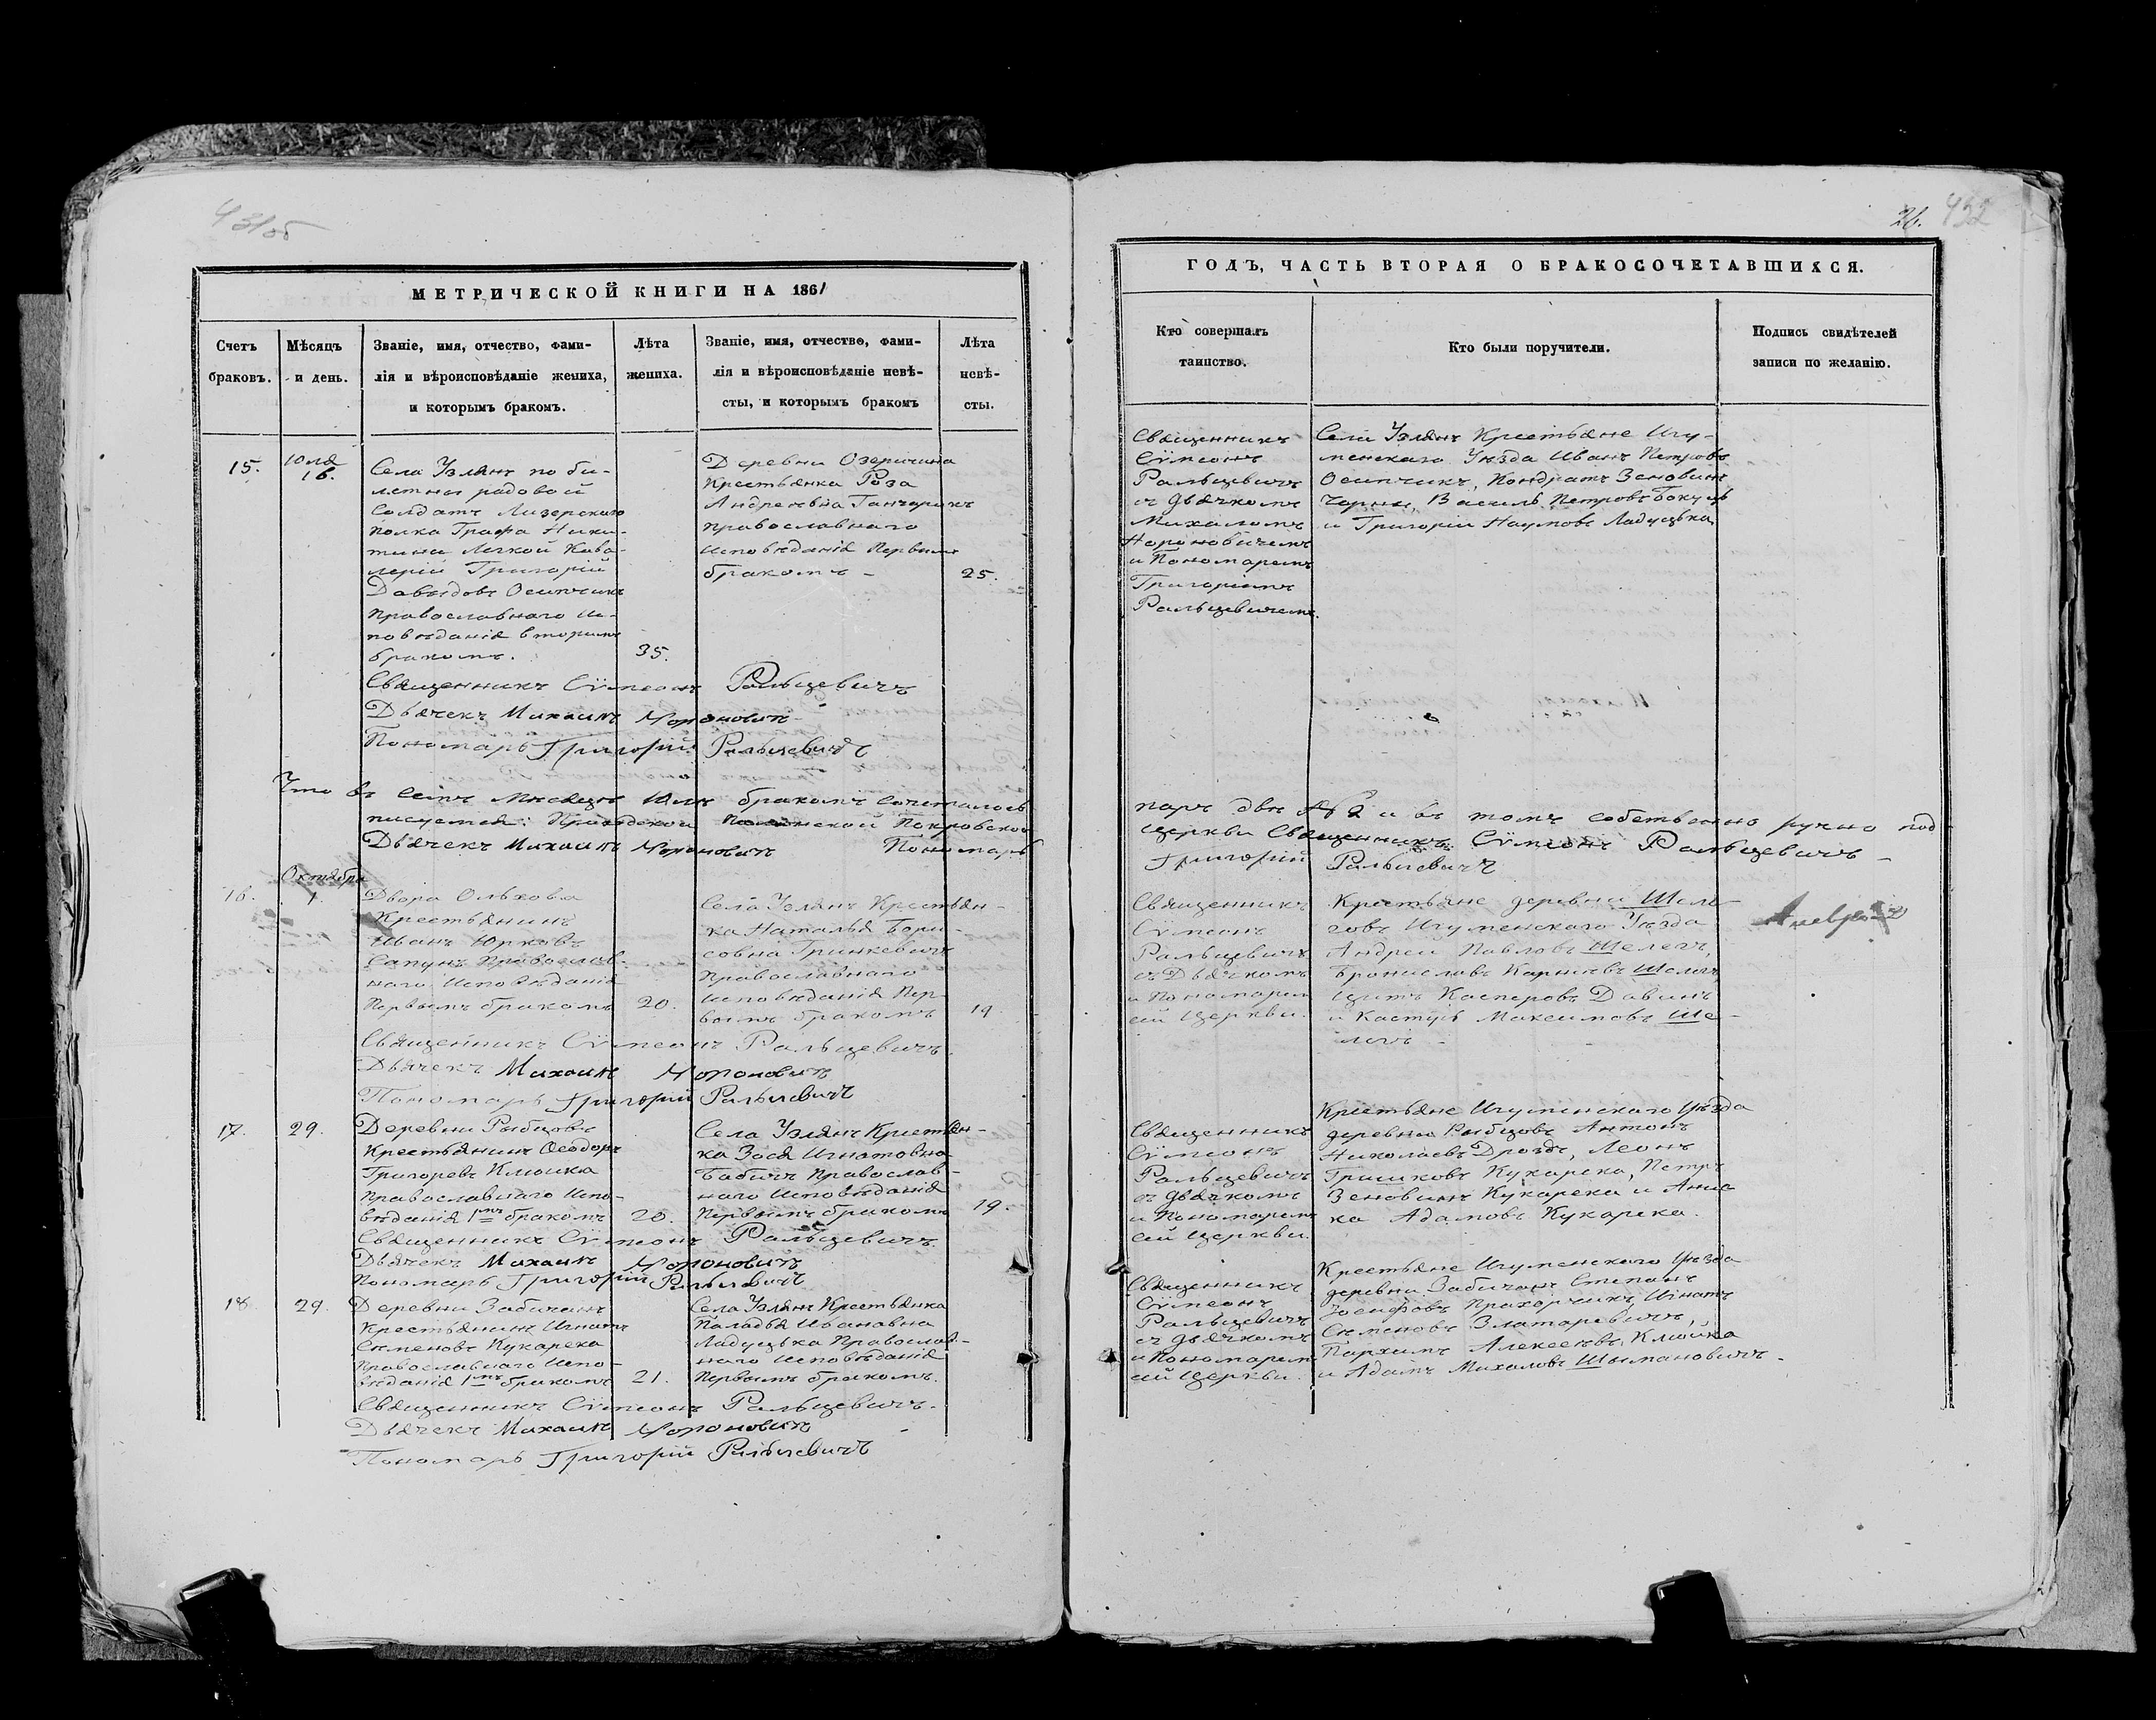 431об
МЕТРИЧЕСКОЙ КНИГИ НА 1861
Счетъ браковъ.
Мѣсяцъ и день.
Званіе, имя, отчество, фами-
лія и вѣроисповѣданіе жениха,
и которымъ бракомъ.
Лѣта жениха.
Званіе, имя, отчество, фами-
лія и вѣроисповѣданіе невѣ-
сты, и которымъ бракомъ
Лѣта невѣ-
сты.
15.
Юля
16.
Села Узлянъ по би-
летный рядовой
Солдатъ Лизерского
полка Графа Ники-
тина Легкой Кава-
леріи Григорій
Давыдовъ Осипчикъ
Православнаго Ис-
повѣданія вторымъ
бракомъ.
35.
Деревни Озеричина
Крестьянка Роза
Андреевна Ганчарикъ
православнаго
исповѣданія Первымъ
бракомъ -
25.
Священникъ Сѵмеонъ Ральцевичъ
Дьячекъ Михаилъ Нороновичъ
Пономарь Григорій Ральцевичъ
Что въ семъ Мѣсяцѣ Юлѣ бракомъ Сочеталось
писуемся: Приходской Покровской
Дьячекъ Михаилъ Нороновичъ Пономарь
Октября
16.
1.
Двора Ольхова
Крестьянинъ
Иванъ Юрковъ
Сапунъ Православ-
наго Исповѣданія
Первымъ бракомъ
20.
Села Узлянъ Крестьян-
ка Наталья Бори-
совна Гринкевичъ
Православнаго
Исповѣданія Пер-
вымъ бракомъ
19
Священникъ Сѵмеонъ Ральцевичъ.
Дьячекъ Михаилъ Нороновичъ
Пономарь Григорій Ральцевичъ
17.
29.
Деревни Рыбцовъ
Крестьянинъ Ѳеодоръ
Григоревъ Клюшка
Православнаго Испо-
вѣданія 1мъ бракомъ
20.
Села Узлянъ Крестьян-
ка Зося Игнатовна
Бабичъ Православ-
наго Исповѣданія
Первымъ бракомъ
19.
Священникъ Сѵмеонъ Ральцевичъ
Дьячекъ Михаилъ Нороновичъ
Пономарь Григорій Ральцевичъ
18
29.
Деревни Забичанъ
Крестьянинъ Игнатъ
Семеновъ Кукарека
Православнаго Испо-
вѣданія 1мъ бракомъ
21.
Села Узлянъ Крестьянка
Паладья Ивановна
Ладуцька Православ-
наго Исповѣданія
Первымъ бракомъ.
Священникъ Сѵмеонъ Ральцевичъ.
Дьячекъ Михаилъ Нороновичъ
Пономарь Григорій Ральцевичъ
26. 432
ГОДЪ, ЧАСТЬ ВТОРАЯ О БРАКОСОЧЕТАВШИХСЯ.
Кто совершалъ
таинство.
Кто были поручители.
Подпись свидѣтелей
записи по желанію.
Священникъ
Сѵмеонъ
Ральцевичъ
съ дьячкомъ
Михаломъ
Нороновичемъ
и Пономаремъ
Григоріемъ
Ральцевичемъ.
Села Узлянъ Крестьяне Игу-
менскаго Уѣзда Иванъ Петровъ
Осипчикъ, Кондратъ Зеновинъ
Чорны, Василь Петровъ Бакунъ
и Григорій Наумовъ Ладуцька
паръ двѣ № 2 и въ томъ собственно ручно под-
церкви Священникъ Сѵмеонъ Ральцевичъ
Григорій Ральцевичъ
Священникъ
Сѵмеонъ
Ральцевичъ
съ Дьячкомъ
и Пономарем
сій Церкви.
Крестьяне деревни Шеле-
говъ Игуменскаго Уѣзда
Андрей Павловъ Шелегъ,
Брониславъ Карнѣевъ Шелегъ
Касперовъ
и Кастусь Максимовъ Ше-
легъ -
Священникъ
Сѵмеонъ
Ральцевичъ
съ дьячкомъ
и Пономаремъ
сій Церкви.
Крестьяне Игуменскаго Уѣзда
деревни Рыбцовъ Антонъ
Николаевъ Дроздъ, Леонъ
Гришковъ Кукарека, Петръ
Зеновинъ Кукарека и Анис-
ка Адамовъ Кукарека.
Священникъ
Сѵмеонъ
Ральцевичъ
съ дьячкомъ
и Пономарем
сій Церкви.
Крестьяне Игуменскаго Уѣзда
деревни Забичанъ Степанъ
Іосифовъ Прахорчикъ, Игнатъ
Семеновъ Златаревичъ,
Пархимъ Алексеевъ Клюшка
и Адамъ Михаловъ Шымановичъ -